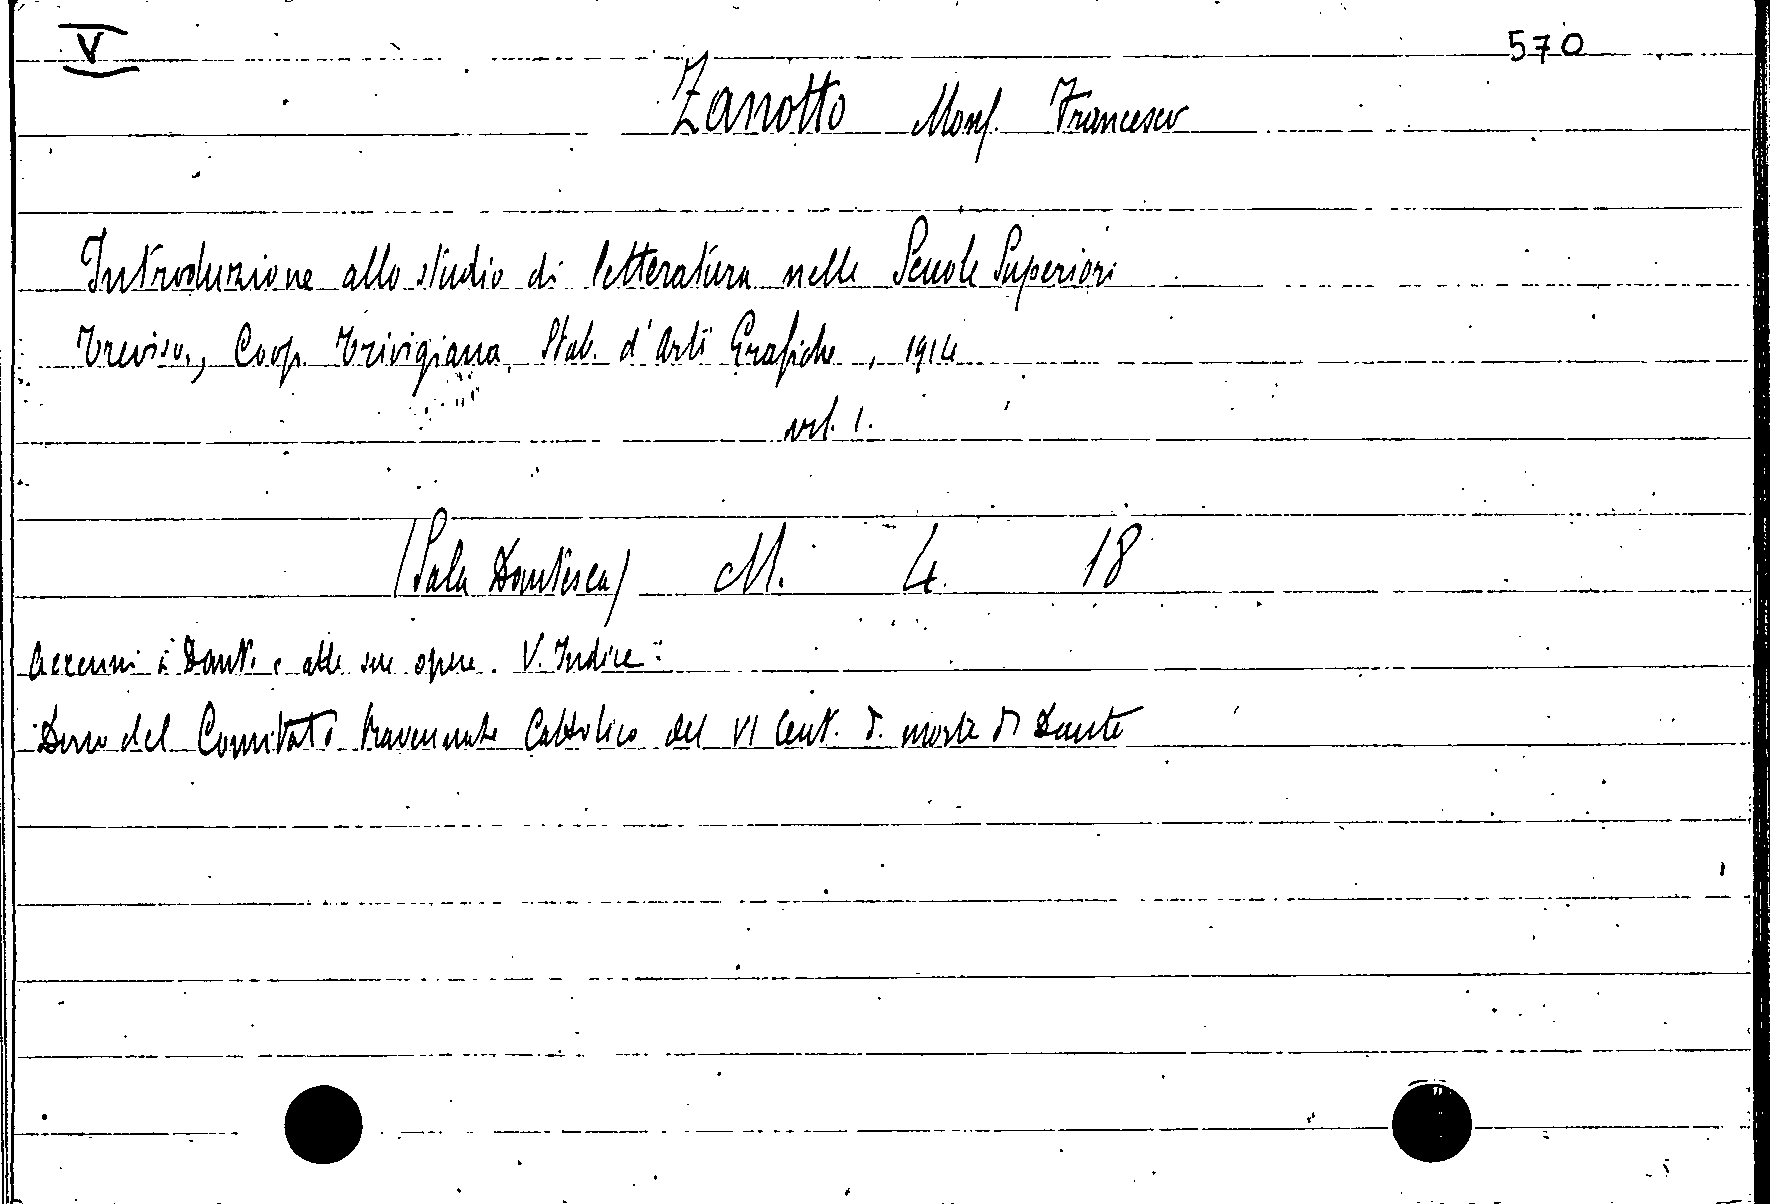 V 570
Zanotto Mons. Francesco
Introduzione allo studio di letteratura nelle Scuole Superiori
Treviso, Coop. Trivigiana, Stab. d'Arti Grafiche, 1914
vol. 1.
(Sala Dantesca) M. 4. 18
Accenni a Dante e alle sue opere. V. Indice:
Dono del Comitato Ravennate Cattolico del VI Cent. d. morte di Dante